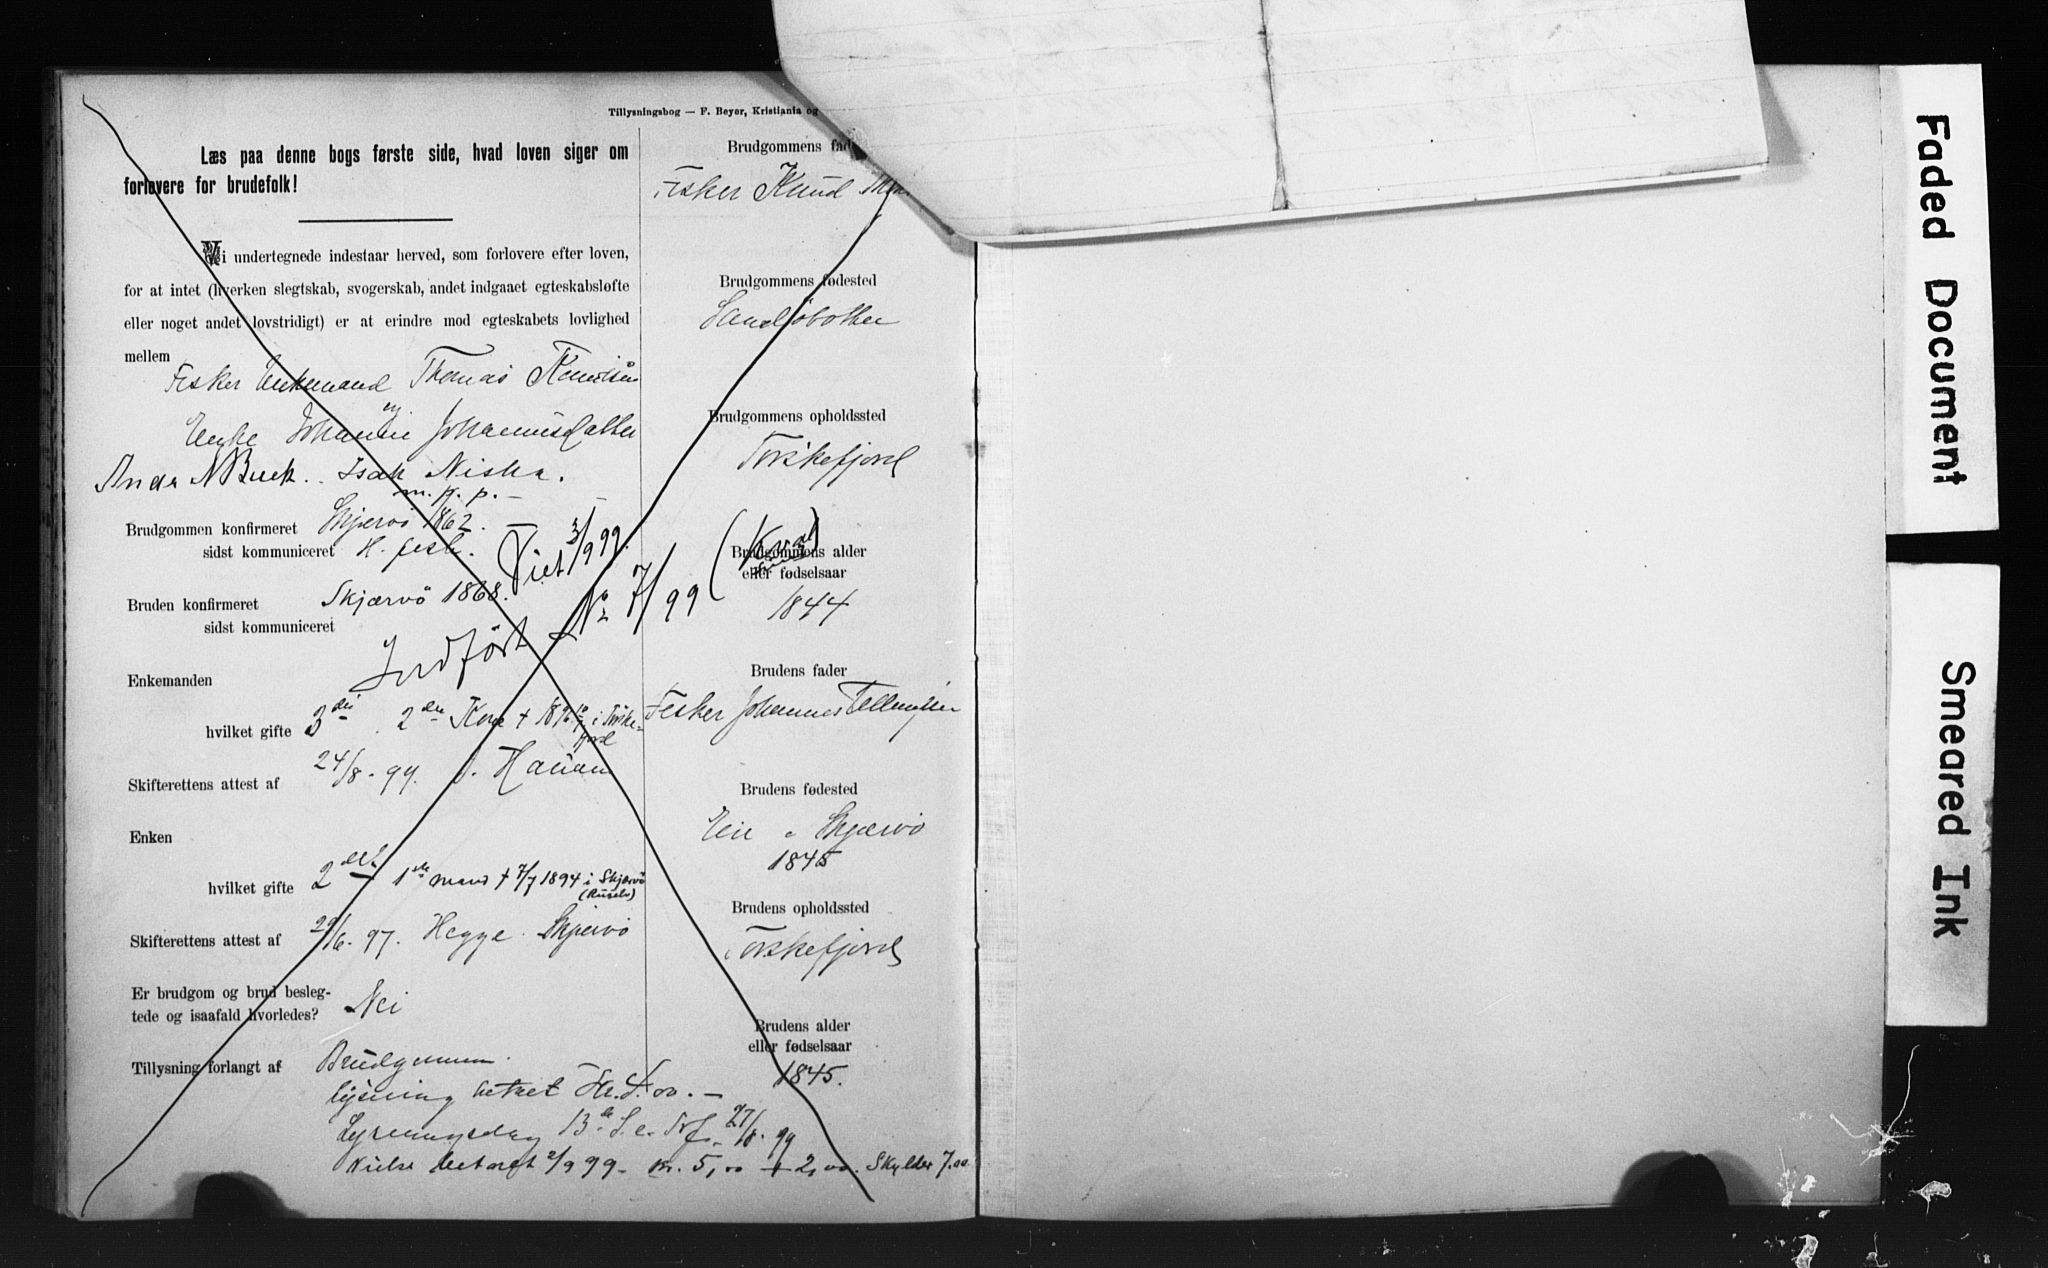 Tillysningsbog — F. Beyer, Kristiania og
Læs paa denne bogs første side, hvad loven siger om
forlovere for brudefolk!
Vi undertegnede indestaar herved, som forlovere efter loven,
for at intet (hverken slegtskab, svogerskab, andet indgaaet egteskabsløfte
eller noget andet lovstridigt) er at erindre mod egteskabets lovlighed
mellem
Fisker Enkemand Thomas Knudsen
og
Enke Johanne Johannesdatter
Anders N Buck. Isak Niska.
m. p. p. —
Brudgommen konfirmeret Skjervö 1862. —
sidst kommuniceret H.
Viet 3/9 99.
Bruden konfirmeret Skjærvö 1868.
sidst kommuniceret
Indført No 7/99 (Kval
Enkemanden
hvilket gifte 3die 2den Kone + 1896 i Torske-
fjord
Skifterettens attest af 24/8 - 99. Hauan
Enken
hvilket gifte 2det 1ste mand + 7/7 1894 i Skjærvö
Skifterettens attest af 29/6. 97. Hegge. Skjervö
Er brudgom og brud beslegtede og isaafald hvorledes? Nei
Tillysning forlangt af Brudgommen.
lysning betalt Kr. 4.00. —
Lysningsdag 13de S. e. Trf. 27/8. 99
Vielse betaret 2/9 99 - kr. 5,00 + 2,00. Skylder 7.00
Brudgommens fad
Fisker Knud
Brudgommens fødested
Sandsøbotten
Brudgommens opholdssted
Torskefjord
Brudgommens alder
eller fødselsaar
1844
Brudens fader
Fisker Johannes Tellevsen
Brudens fødested
Skjærvö
1845
Brudens opholdssted
Torskefjord
Brudens alder
eller fødselsaar
1845.
Faded Document
Smeared Ink